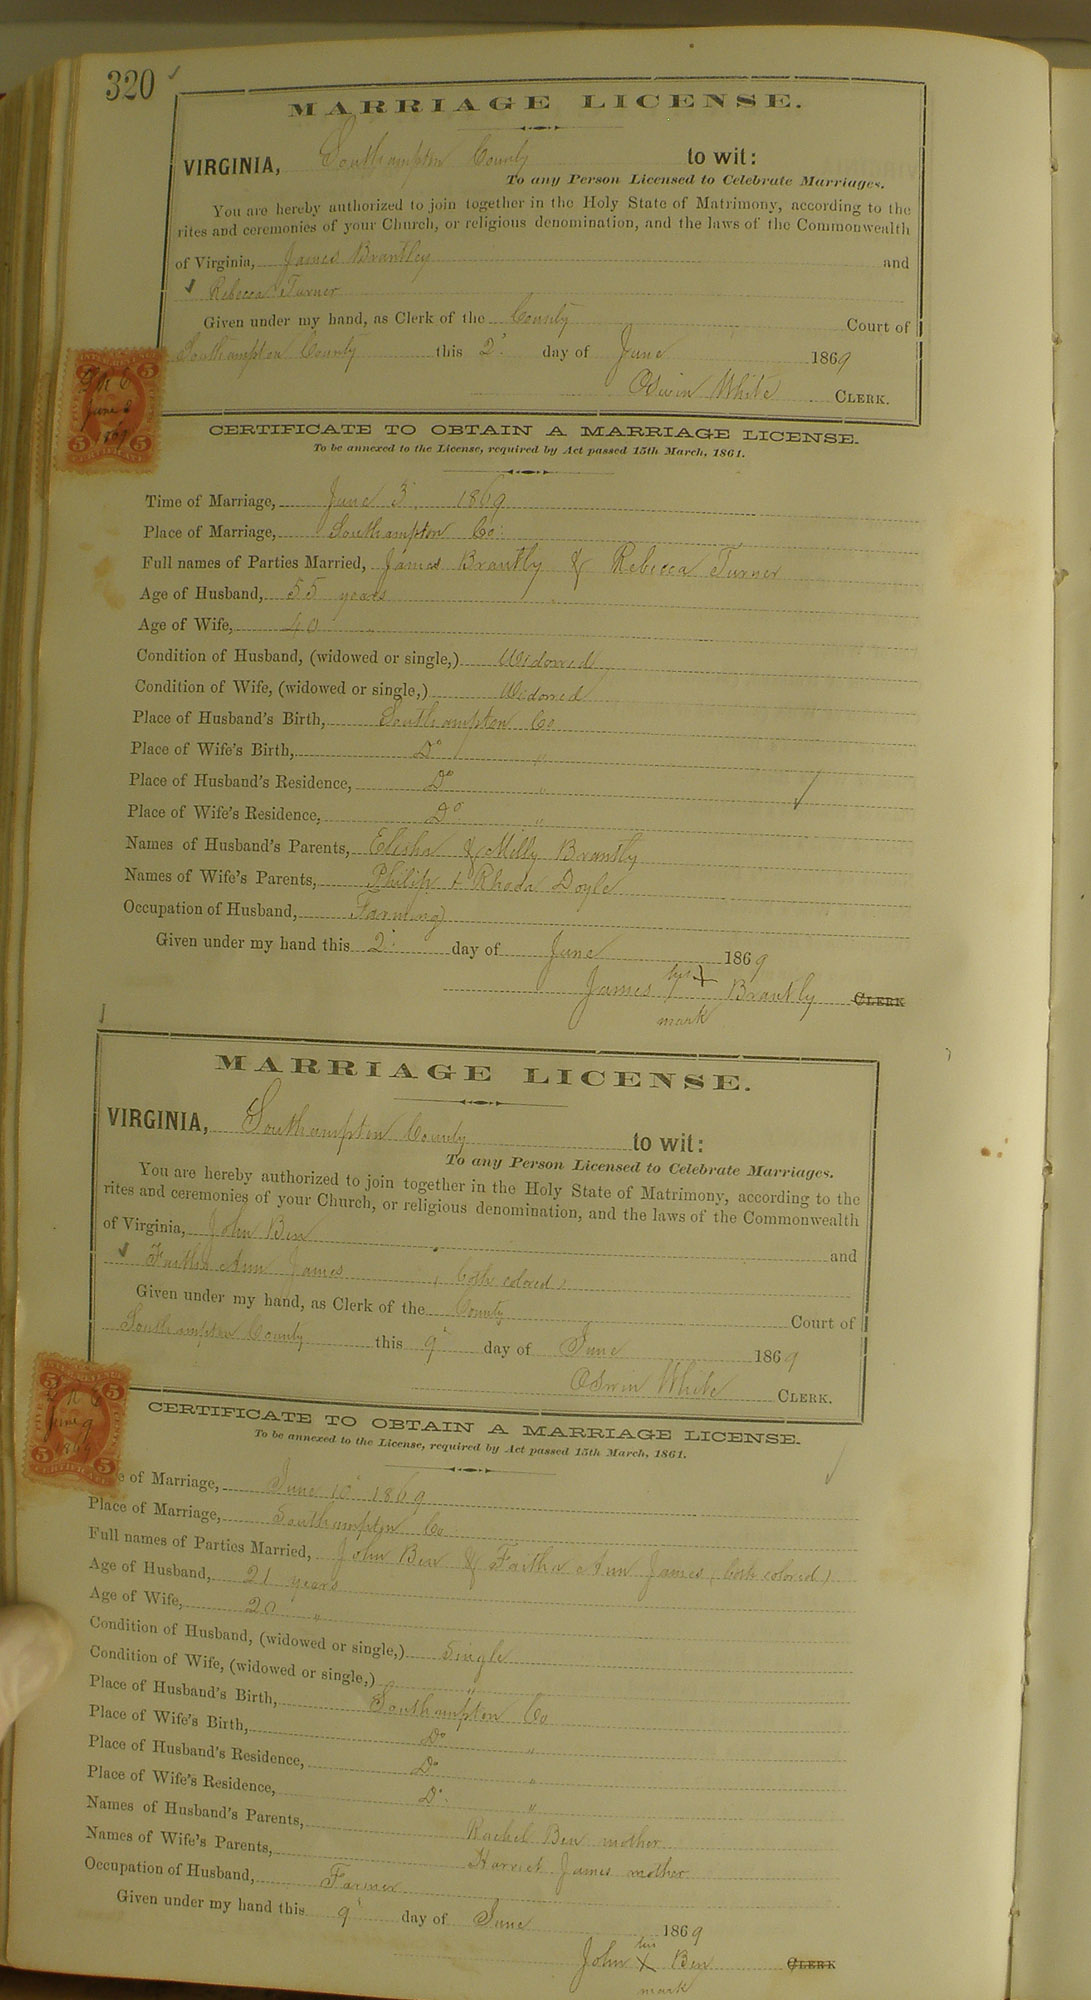 320
MARRIAGE LICENSE.
VIRGINIA, Southampton County to wit:
To any Person Licensed to Celebrate Marriages.
You are hereby authorized to join together in the Holy State of Matrimony, according to the
rites and ceremonies of your Church, or religious denomination, and the laws of the Commonwealth
of Virginia, James Brantley and
Rebecca Turner
Given under my hand, as Clerk of the County Court of
Southampton County this 2 day of June 1869
White CLERK.
5 5
June 2
1869
5 5
CERTIFICATE
CERTIFICATE TO OBTAIN A MARRIAGE LICENSE.
To be annexed to the License, required by Act passed 15th March, 1861.
Time of Marriage, June 3 1869
Place of Marriage, Southampton Co:
Full names of Parties Married, James Brantly & Rebecca Turner
Age of Husband, 55 years
Age of Wife, 40
Condition of Husband, (widowed or single,) Widowed
Condition of Wife, (widowed or single,) Widowed
Place of Husband's Birth, Southampton Co
Place of Wife's Birth, Do "
Place of Husband's Residence, Do "
Place of Wife's Residence, Do "
Names of Husband's Parents, Elisha & Milly Brantly
Names of Wife's Parents, Philip + Rhoda Doyle
Occupation of Husband, Farming
Given under my hand this 2 day of June 1869
James his X Brantly CLERK
mark
MARRIAGE LICENSE.
VIRGINIA, Southampton County to wit:
To any Person Licensed to Celebrate Marriages.
You are hereby authorized to join together in the Holy State of Matrimony, according to the
rites and ceremonies of your Church, or religious denomination, and the laws of the Commonwealth
of Virginia, John Ben and
Faitha Ann James, (both colored)
Given under my hand, as Clerk of the County Court of
Southampton County this 9 day of June 1869
White CLERK.
5 5
June 9
1869
5 5
CERTIFICATE
CERTIFICATE TO OBTAIN A MARRIAGE LICENSE.
To be annexed to the License, required by Act passed 15th March, 1861.
e of Marriage, June 10 1869
Place of Marriage, Southampton Co
Full names of Parties Married, John Ben & Faitha Ann James (both colored)
Age of Husband, 21 years
Age of Wife, 20 "
Condition of Husband, (widowed or single,) Single
Condition of Wife, (widowed or single,) "
Place of Husband's Birth, Southampton Co
Place of Wife's Birth, Do "
Place of Husband's Residence, Do "
Place of Wife's Residence, Do "
Names of Husband's Parents, Rachel Ben mother
Names of Wife's Parents, Harriet James mother
Occupation of Husband, Farmer
Given under my hand this 9 day of June 1869
John his X Ben CLERK
mark